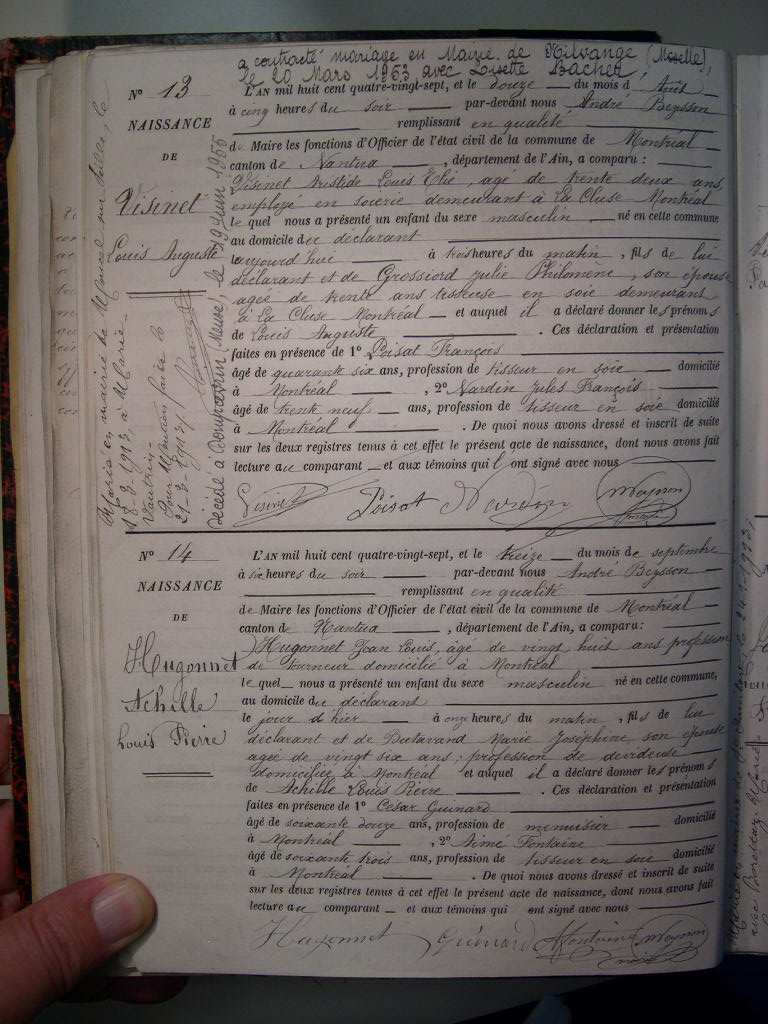 a contracté mariage en Mairie de Nilvange (Moselle),
le 20 Mars 1953 avec Lisette Bacher,
N° 13
NAISSANCE
DE
Visinet
Louis Auguste
Marié en mairie de
18-2-1913, à
Pour Mention faite le
21-2-1913,
Décédé à Meuse, le 19 Juin 1955
L'AN mil huit cent quatre-vingt-sept, et le douze du mois d' Août
à cinq heures du soir par-devant nous André Beysson
remplissant en qualité
de Maire les fonctions d'Officier de l'état civil de la commune de Montréal
canton de Nantua, département de l'Ain, a comparu :
Visinet Aristide Louis Elie, agé de trente deux ans,
employé en soierie demeurant à La Cluse Montréal
le quel nous a présenté un enfant du sexe masculin né en cette commune
au domicile du déclarant
aujourd'hui à trois heures du matin, fils de lui
déclarant et de Grossiord Julie Philomene, son épouse
agée de trente ans tisseuse en soie demeurant
à La Cluse Montréal et auquel il a déclaré donner les prénoms
de Louis Auguste. Ces déclaration et présentation
faites en présence de 1° Poisat François
âgé de quarante six ans, profession de tisseur en soie domicilié
à Montréal, 2° Nardin Jules François
âgé de trente neuf ans, profession de tisseur en soie domicilié
à Montréal. De quoi nous avons dressé et inscrit de suite
sur les deux registres tenus à cet effet le présent acte de naissance, dont nous avons fait
lecture au comparant et aux témoins qui ont signé avec nous
Visinet Poisat Nardin
N° 14
NAISSANCE
DE
Hugonnet
Achille
Louis Pierre
L'AN mil huit cent quatre-vingt-sept, et le treize du mois de septembre
à six heures du soir par-devant nous André Beysson
remplissant en qualité
de Maire les fonctions d'Officier de l'état civil de la commune de Montréal
canton de Nantua, département de l'Ain, a comparu :
Hugonnet Jean Louis, age de vingt huit ans profession
de tourneur domicilié à Montréal
le quel nous a présenté un enfant du sexe masculin né en cette commune,
au domicile du déclarant
le jour d'hier à onze heures du matin, fils de lui
déclarant et de Dutavand Marie Joséphine son épouse
agee de vingt six ans, profession de devideuse
domiciliée à Montréal et auquel il a déclaré donner les prénoms
de Achille Louis Pierre. Ces déclaration et présentation
faites en présence de 1° Cesar Guinard
âgé de soixante douze ans, profession de menuisier domicilié
à Montréal, 2° Aimé Fontaine
âgé de soixante trois ans, profession de tisseur en soie domicilié
à Montréal. De quoi nous avons dressé et inscrit de suite
sur les deux registres tenus à cet effet le présent acte de naissance, dont nous avons fait
lecture au comparant et aux témoins qui ont signé avec nous
Hugonnet Guinard Afontaine